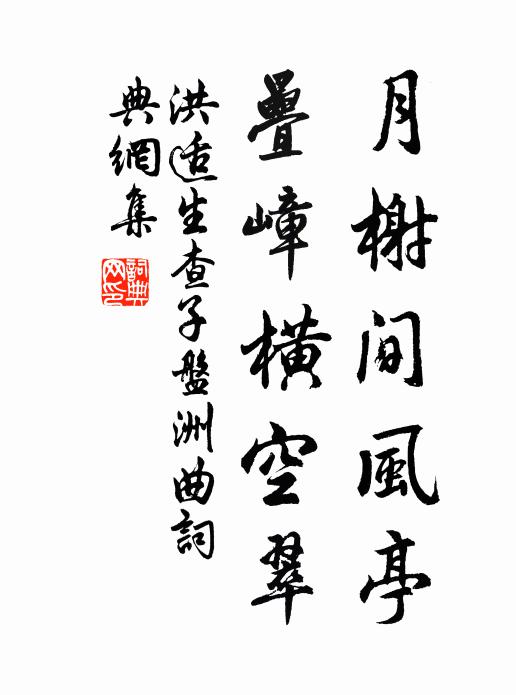 月榭間風亭
疊嶂橫空翠
洪适生查子盤洲曲詞
典網集
詞典
网印